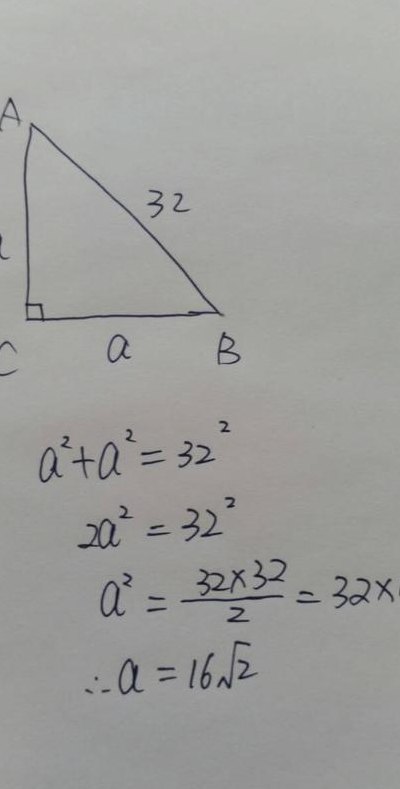 A
32
C
a
B
a²+a²=32²
2a²=32²
a²=32×32/2=32×
∴a=16√2